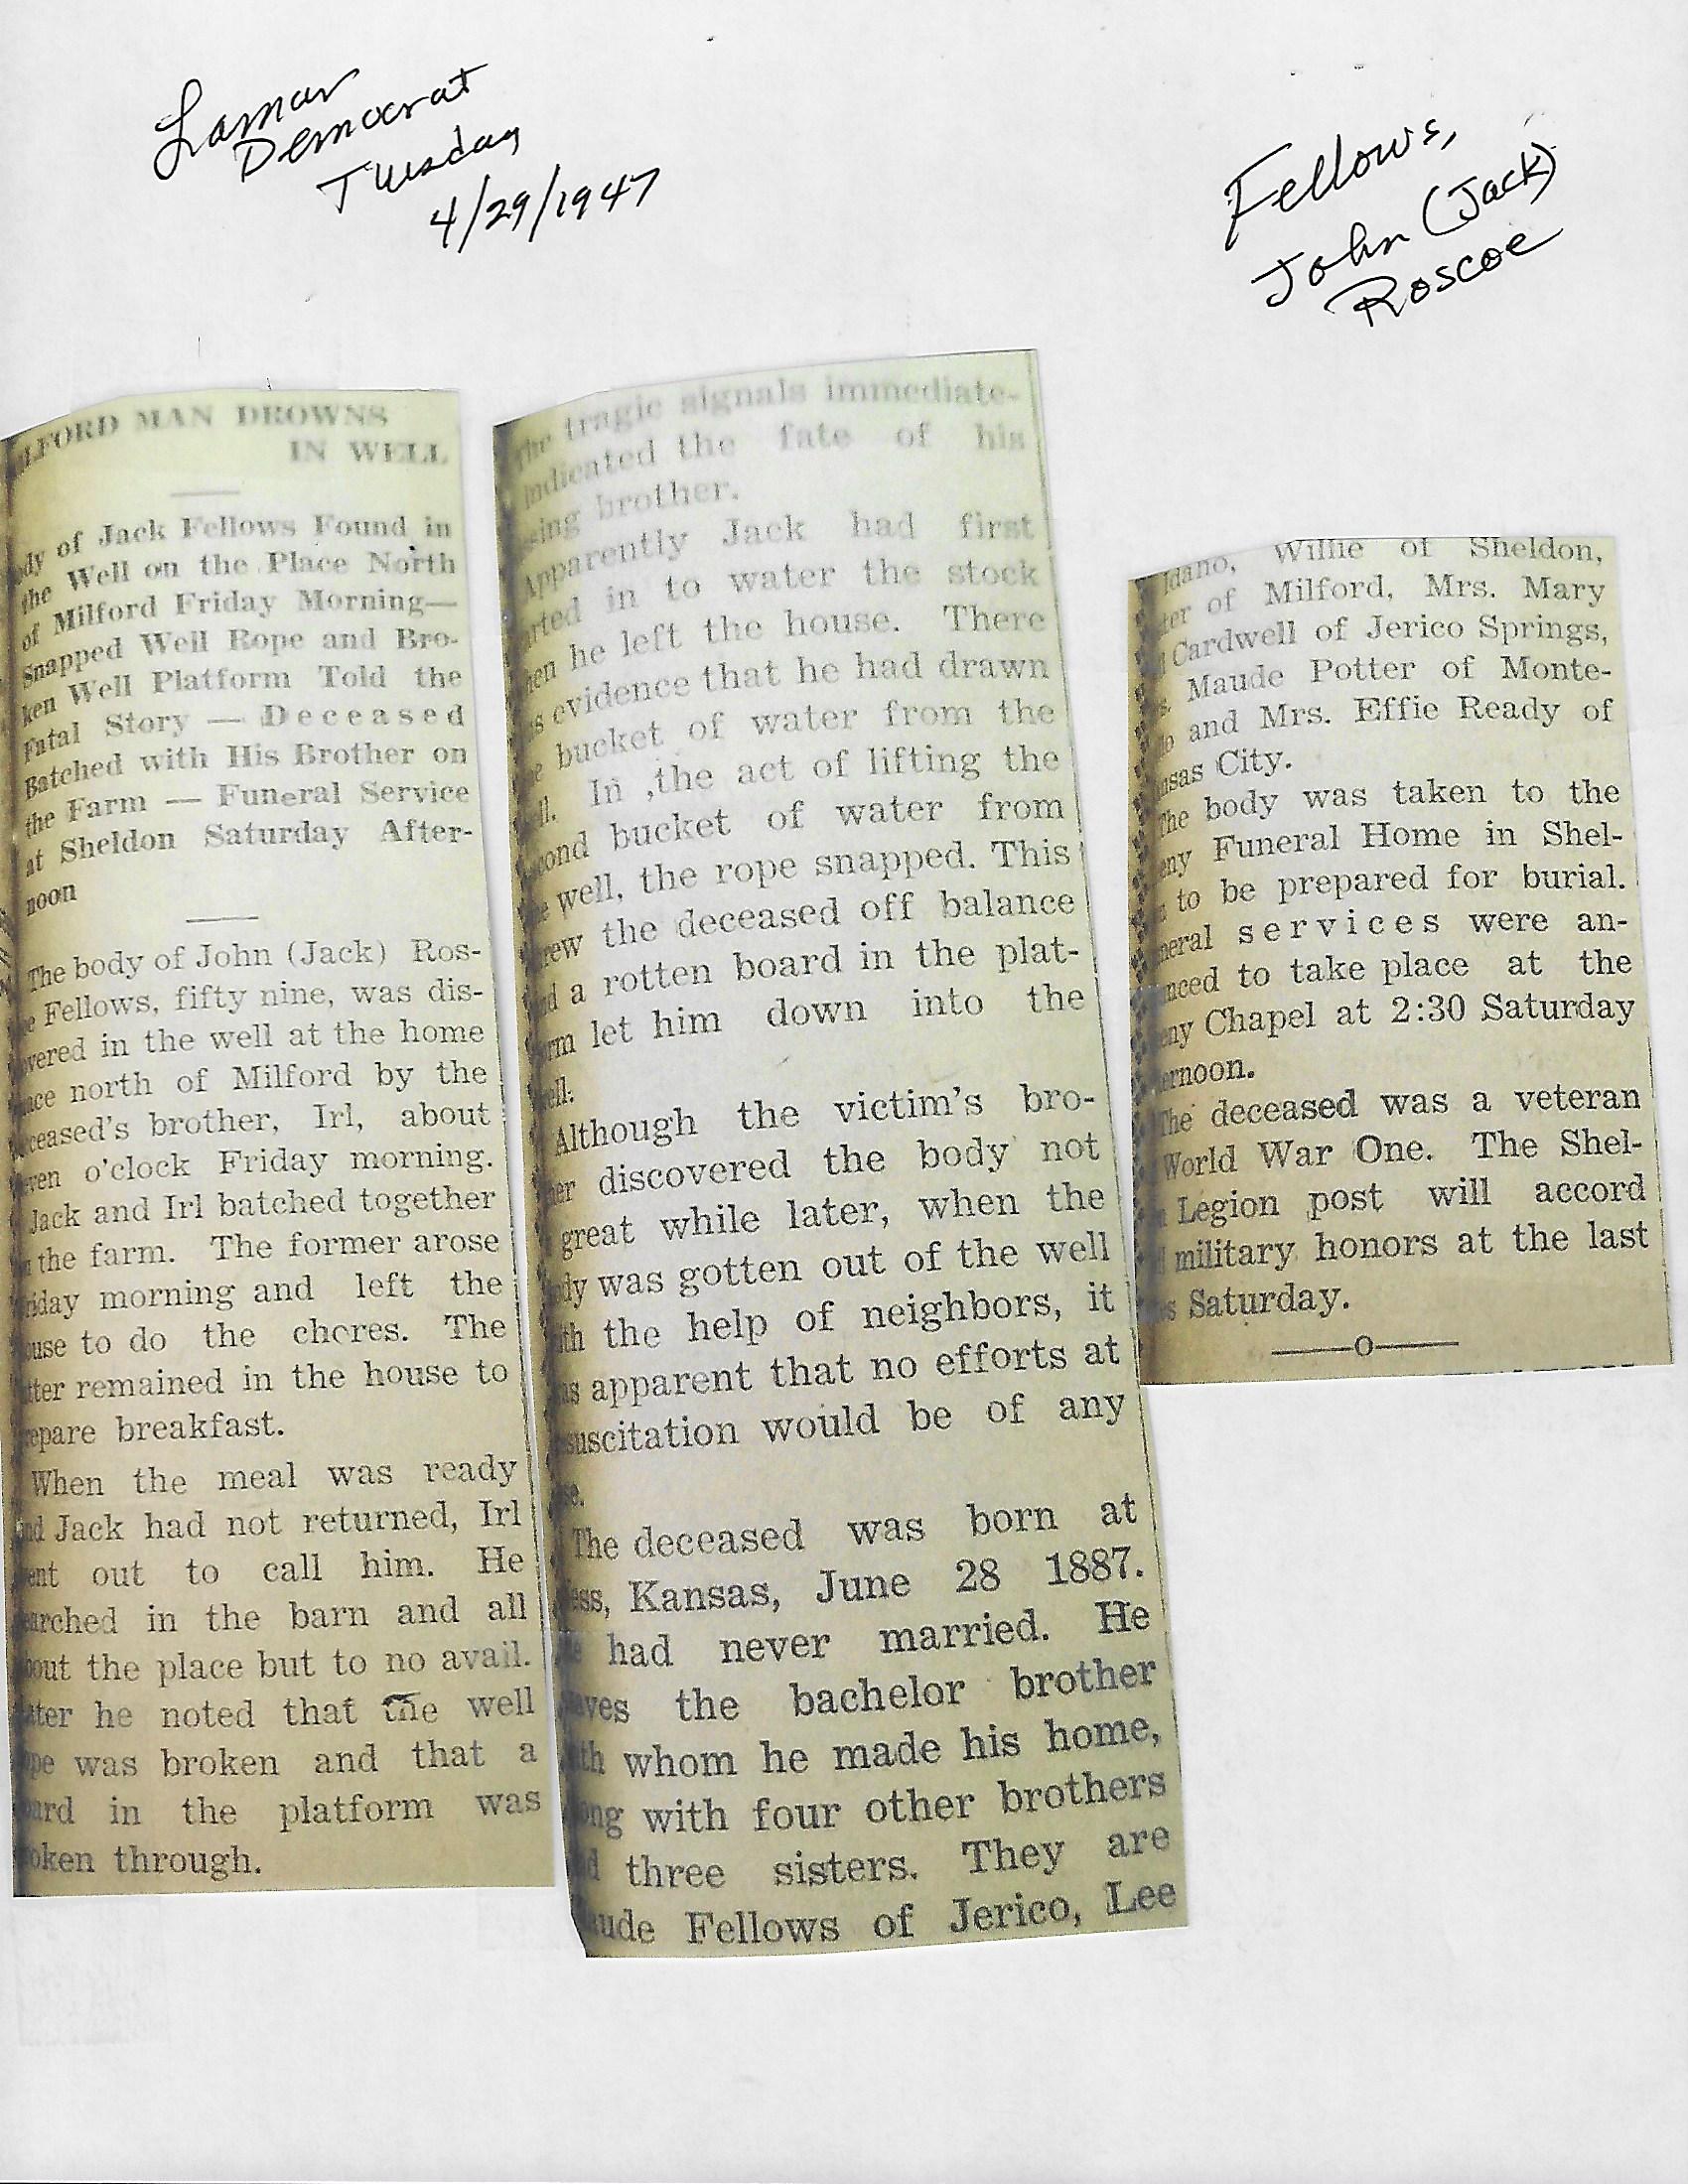 Lamar
Democrat
Tuesday
4/29/1947
Fellows,
John (Jack)
Roscoe
LFORD MAN DROWNS
IN WELL
dy of Jack Fellows Found in
the Well on the Place North
of Milford Friday Morning—
Snapped Well Rope and Bro-
ken Well Platform Told the
Fatal Story — Deceased
Batched with His Brother on
the Farm — Funeral Service
at Sheldon Saturday After-
noon
The body of John (Jack) Ros-
e Fellows, fifty nine, was dis-
vered in the well at the home
ace north of Milford by the
ceased's brother, Irl, about
ven o'clock Friday morning.
Jack and Irl batched together
the farm. The former arose
riday morning and left the
ouse to do the chores. The
tter remained in the house to
epare breakfast.
When the meal was ready
nd Jack had not returned, Irl
ent out to call him. He
arched in the barn and all
out the place but to no avail.
ater he noted that the well
ope was broken and that a
ard in the platform was
oken through.
The tragic signals immediate-
indicated the fate of his
sing brother.
Apparently Jack had first
arted in to water the stock
hen he left the house. There
as evidence that he had drawn
e bucket of water from the
ll. In ,the act of lifting the
cond bucket of water from
e well, the rope snapped. This
rew the deceased off balance
nd a rotten board in the plat-
rm let him down into the
ell.
Although the victim's bro-
er discovered the body not
great while later, when the
dy was gotten out of the well
th the help of neighbors, it
as apparent that no efforts at
suscitation would be of any
se.
The deceased was born at
ess, Kansas, June 28 1887.
had never married. He
aves the bachelor brother
th whom he made his home,
ong with four other brothers
d three sisters. They are
aude Fellows of Jerico, Lee
Idaho, Willie of Sheldon,
ter of Milford, Mrs. Mary
Cardwell of Jerico Springs,
s. Maude Potter of Monte-
o and Mrs. Effie Ready of
nsas City.
The body was taken to the
eny Funeral Home in Shel-
to be prepared for burial.
neral services were an-
nced to take place at the
eny Chapel at 2:30 Saturday
ernoon.
The deceased was a veteran
World War One. The Shel-
Legion post will accord
military honors at the last
es Saturday.
——o——